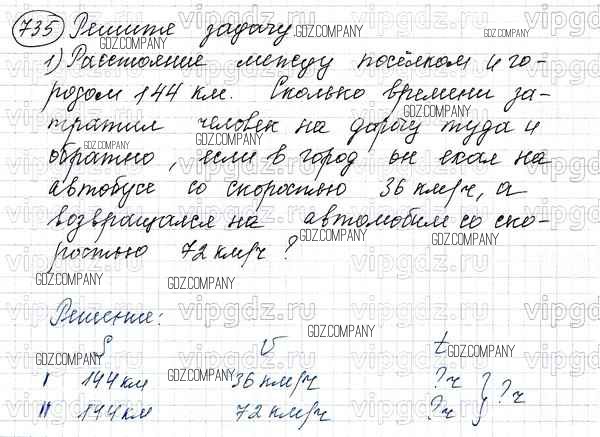 735 Решите задачу.
1) Расстояние между посёлком и го-
родом 144 км. Сколько времени за-
тратил человек на дорогу туда и
обратно, если в город он ехал на
автобусе со скоростью 36 км/ч, а
возвращался на автомобиле со ско-
ростью 72 км/ч?
Решение:
S v t
I 144 км 36 км/ч ? ч } ? ч
II 144 км 72 км/ч ? ч
GDZ.COMPANY
vipgdz.ru